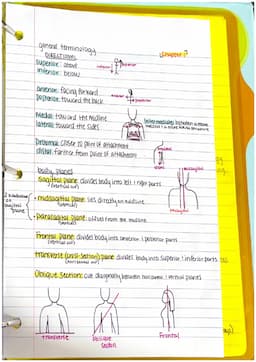 general terminology
Chapter 1
DIRECTIONS
superior: above
inferior: below
anterior: facing forward
posterior: toward the back
Medial: toward the midline
lateral: toward the sides
Proximal: closer to point of attachment
distal: farther from point of attachment
body planes
sagittal plane: divides body into left & right parts
(vertical cut)
midsagittal plane: lies directly on midline
parasagittal plane: offset from the midline
Frontal plane: divides body into anterior & posterior parts
(vertical cut)
transverse (cross-section) plane: divides body into superior & inferior parts
(horizontal cut)
Oblique Section: cut diagonally between horizontal & vertical planes
transverse
oblique
section
Frontal